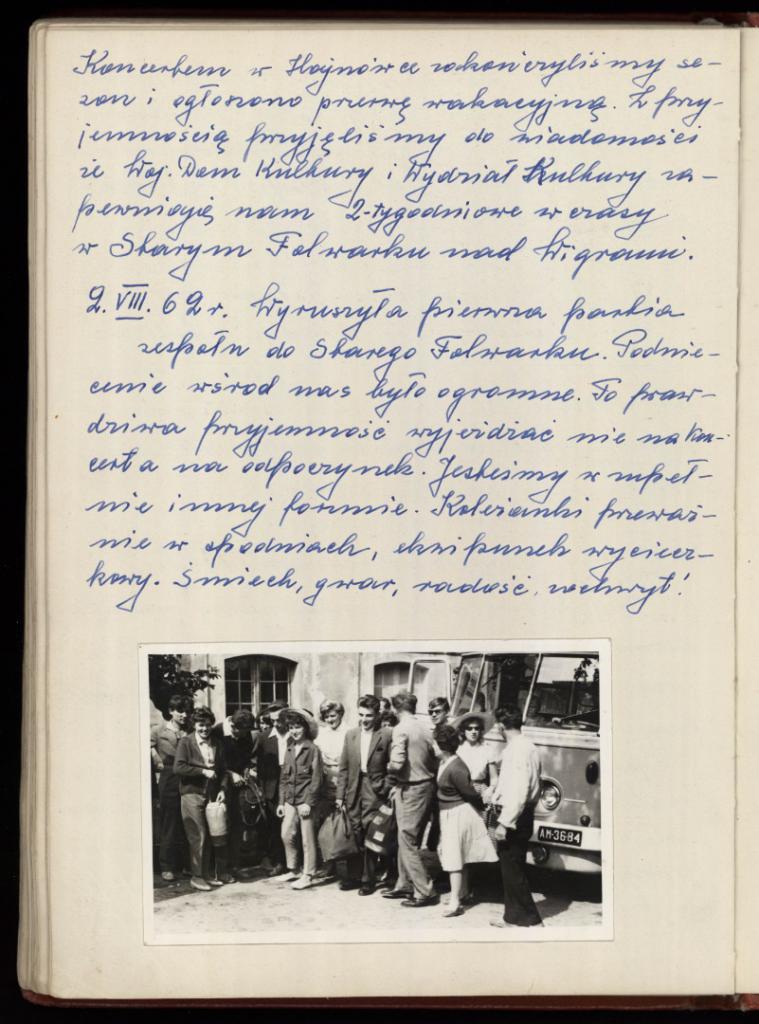 Koncertem w Hajnówce zakończyliśmy se-
zon i ogłoszono przerwę wakacyjną. Z przy-
jemnością przyjęliśmy do wiadomości
że Woj. Dom Kultury i Wydział Kultury za-
pewniają nam 2-tygodniowe wczasy
w Starym Folwarku nad Wigrami.
2. VIII. 62 r. Wyruszyła pierwsza partia
zespołu do Starego Folwarku. Podnie-
cenie wśród nas było ogromne. To praw-
dziwa przyjemność wyjeżdżać nie na kon-
cert a na odpoczynek. Jesteśmy w zupeł-
nie innej formie. Koleżanki przeważ-
nie w spodniach, ekwipunek wyciecz-
kowy. Śmiech, gwar, radość, zachwyt!
AM-3684